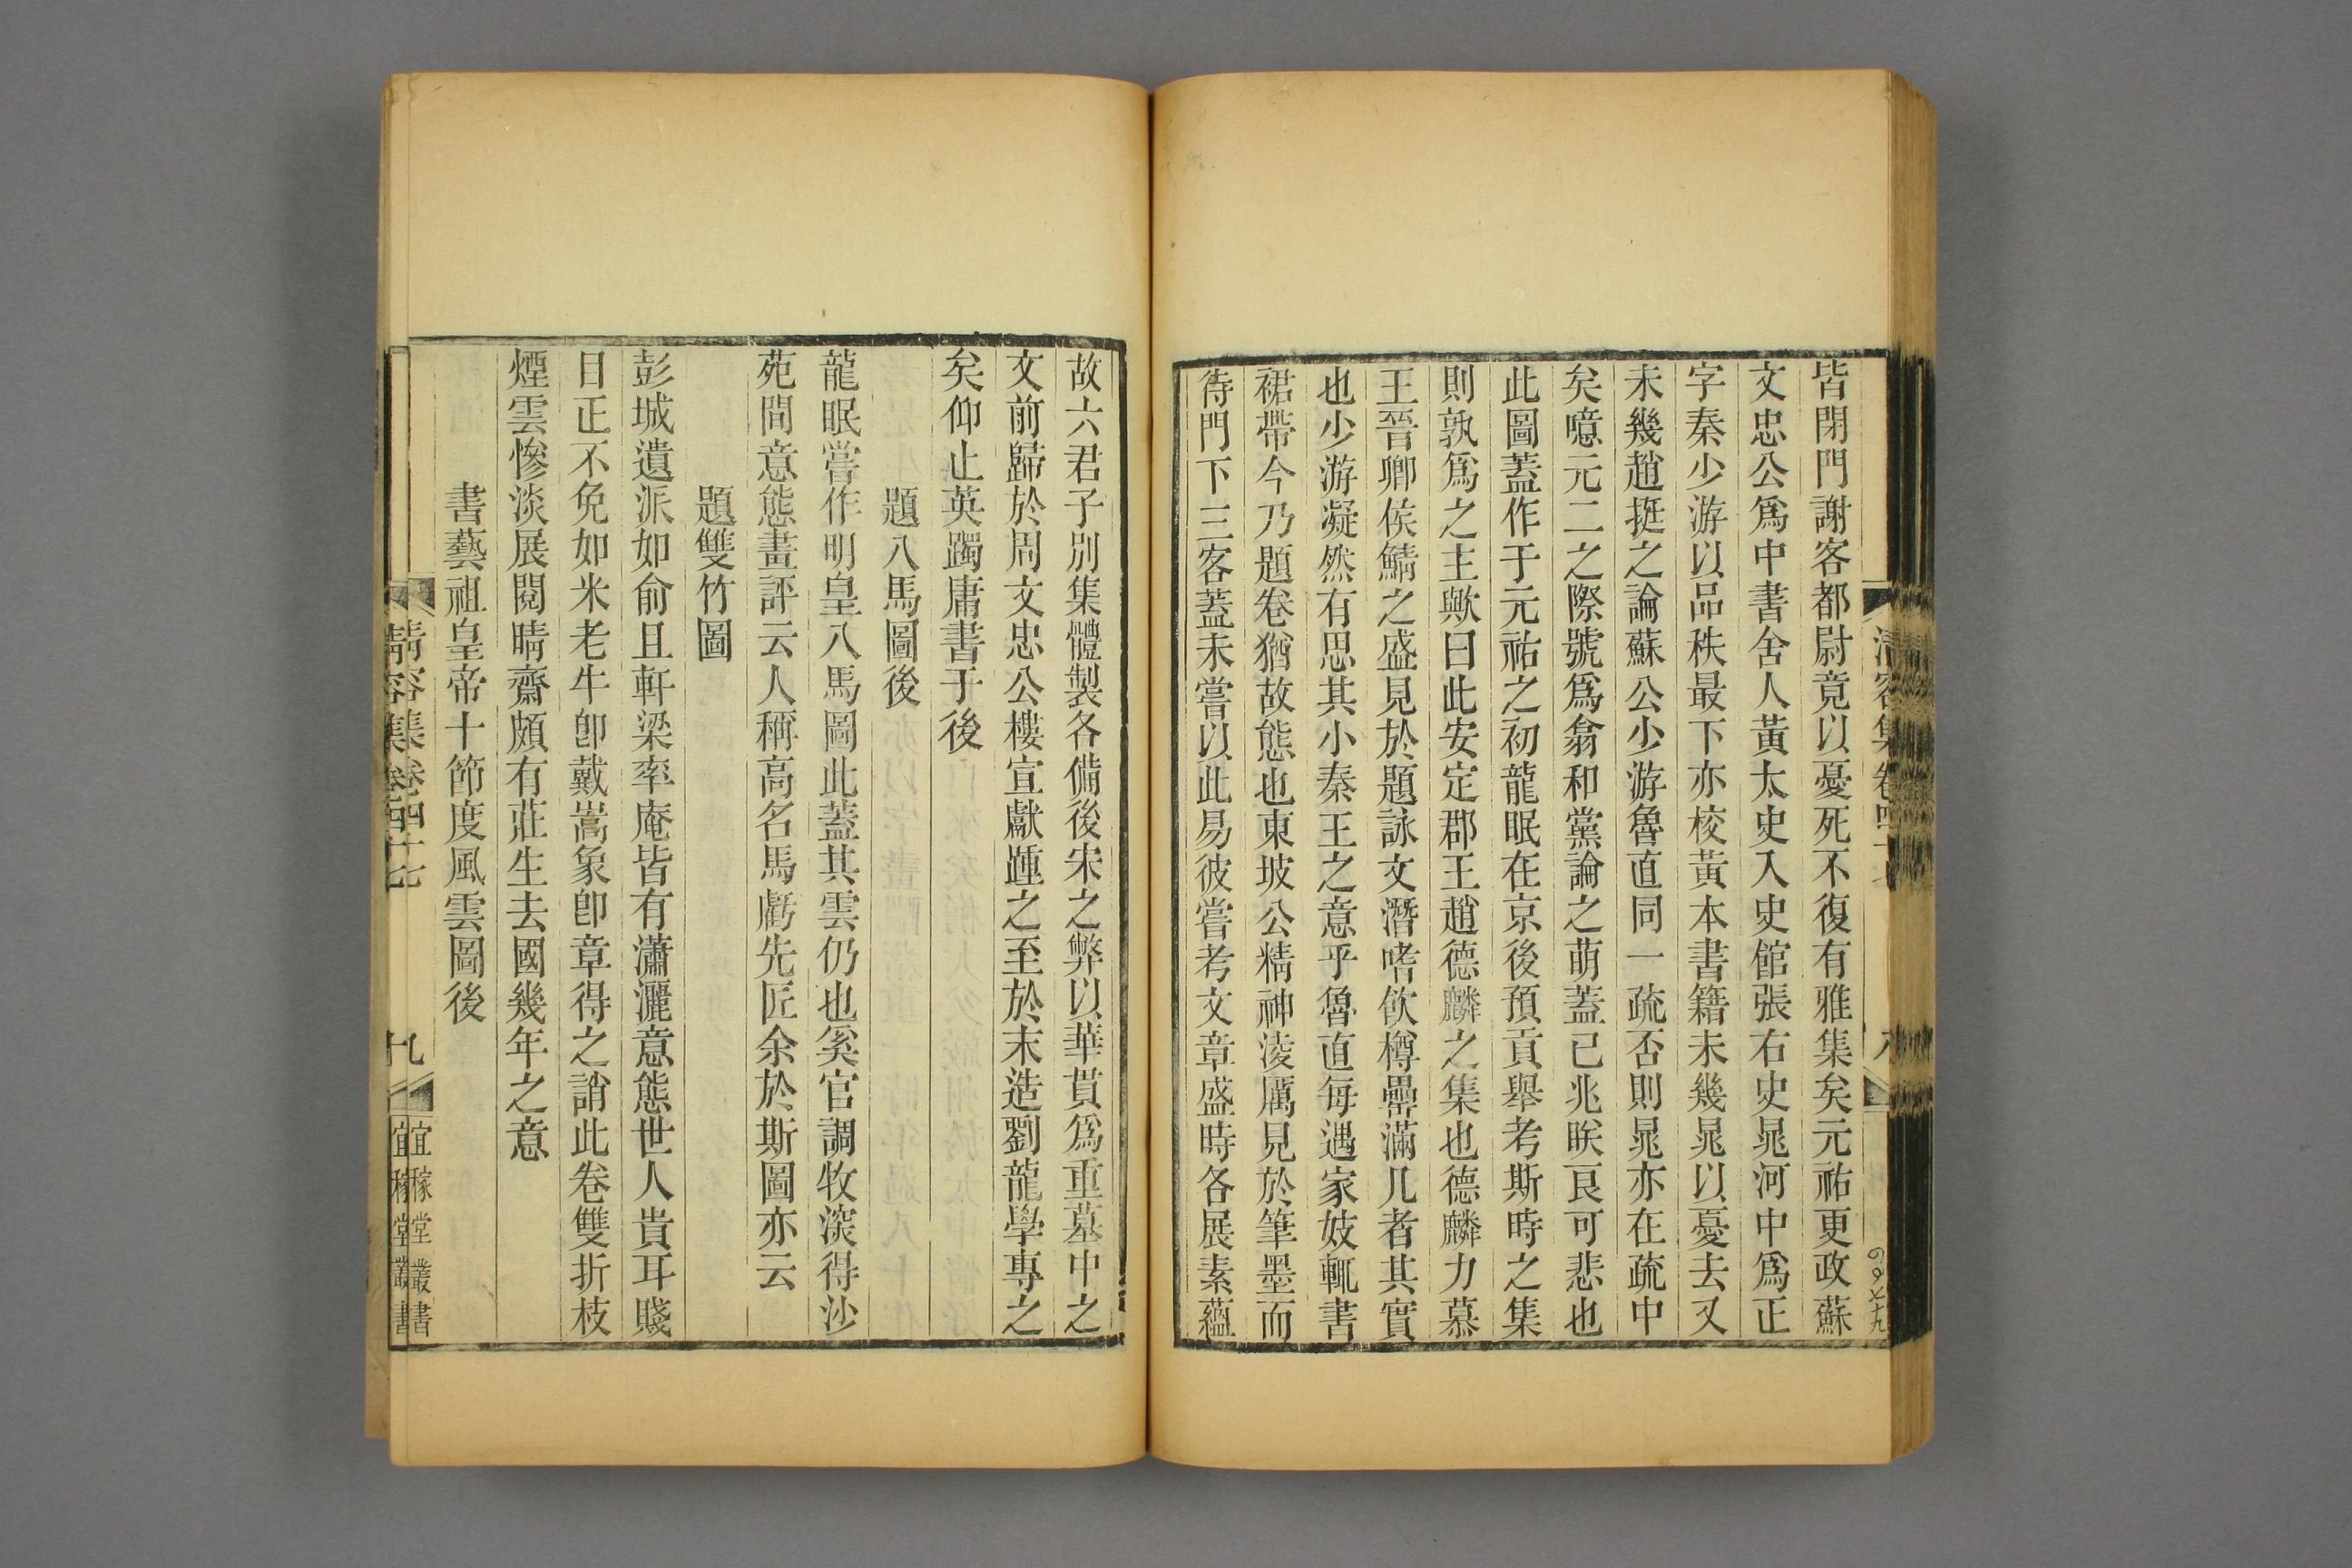 皆閉門謝客都尉竟以憂死不復有雅集矣元祐更政蘇
文忠公爲中書舍人黃太史入史館張右史晁河中爲正
字秦少游以品秩最下亦校黃本書籍未幾晁以憂去又
未幾趙挺之論蘇公少游魯直同一疏否則晁亦在疏中
矣噫元二之際號爲翕和黨論之萌蓋已兆眹良可悲也
此圖蓋作于元祐之初龍眠在京後預貢舉考斯時之集
則孰爲之主歟曰此安定郡王趙德麟之集也德麟力慕
王晉卿侯鯖之盛見於題詠文潛嗜飲樽罍滿几者其實
也少游凝然有思其小秦王之意乎魯直每遇家妓輒書
裙帶今乃題卷猶故態也東坡公精神淩厲見於筆墨而
待門下三客蓋未嘗以此易彼嘗考文章盛時各展素蘊
故六君子別集體製各備後宋之弊以華貫爲重墓中之
文前歸於周文忠公樓宣獻踵之至於末造劉龍學專之
矣仰止英躅庸書于後
題八馬圖後
龍眠嘗作明皇八馬圖此蓋其雲仍也奚官調牧深得沙
苑間意態畫評云人稱高名馬虧先匠余於斯圖亦云
題雙竹圖
彭城遺派如俞且軒梁率庵皆有瀟灑意態世人貴耳賤
目正不免如米老牛卽戴嵩象卽章得之誚此卷雙折枝
煙雲慘淡展閱晴齋頗有莊生去國幾年之意
書藝祖皇帝十節度風雲圖後
清容集卷四十七
九
宜稼堂叢書